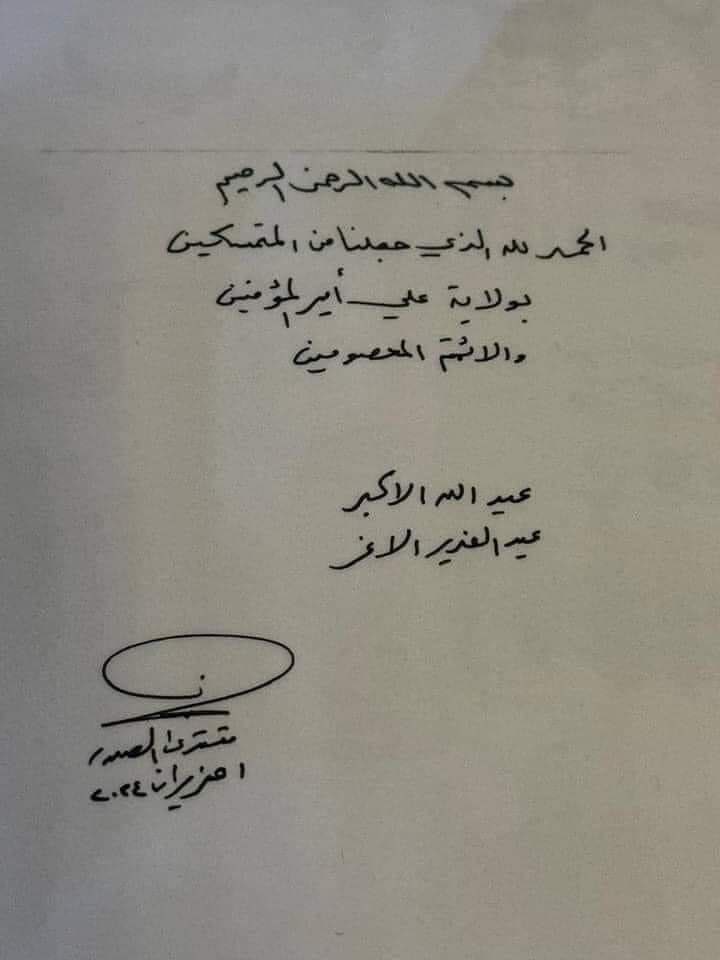 بسم الله الرحمن الرحيم
الحمد لله الذي جعلنا من المتمسكين
بولاية علي أمير المؤمنين
والائمة المعصومين
عيد الله الاكبر
عيد الغدير الاغر
مقتدى الصدر
١ حزيران ٢٠٢٤